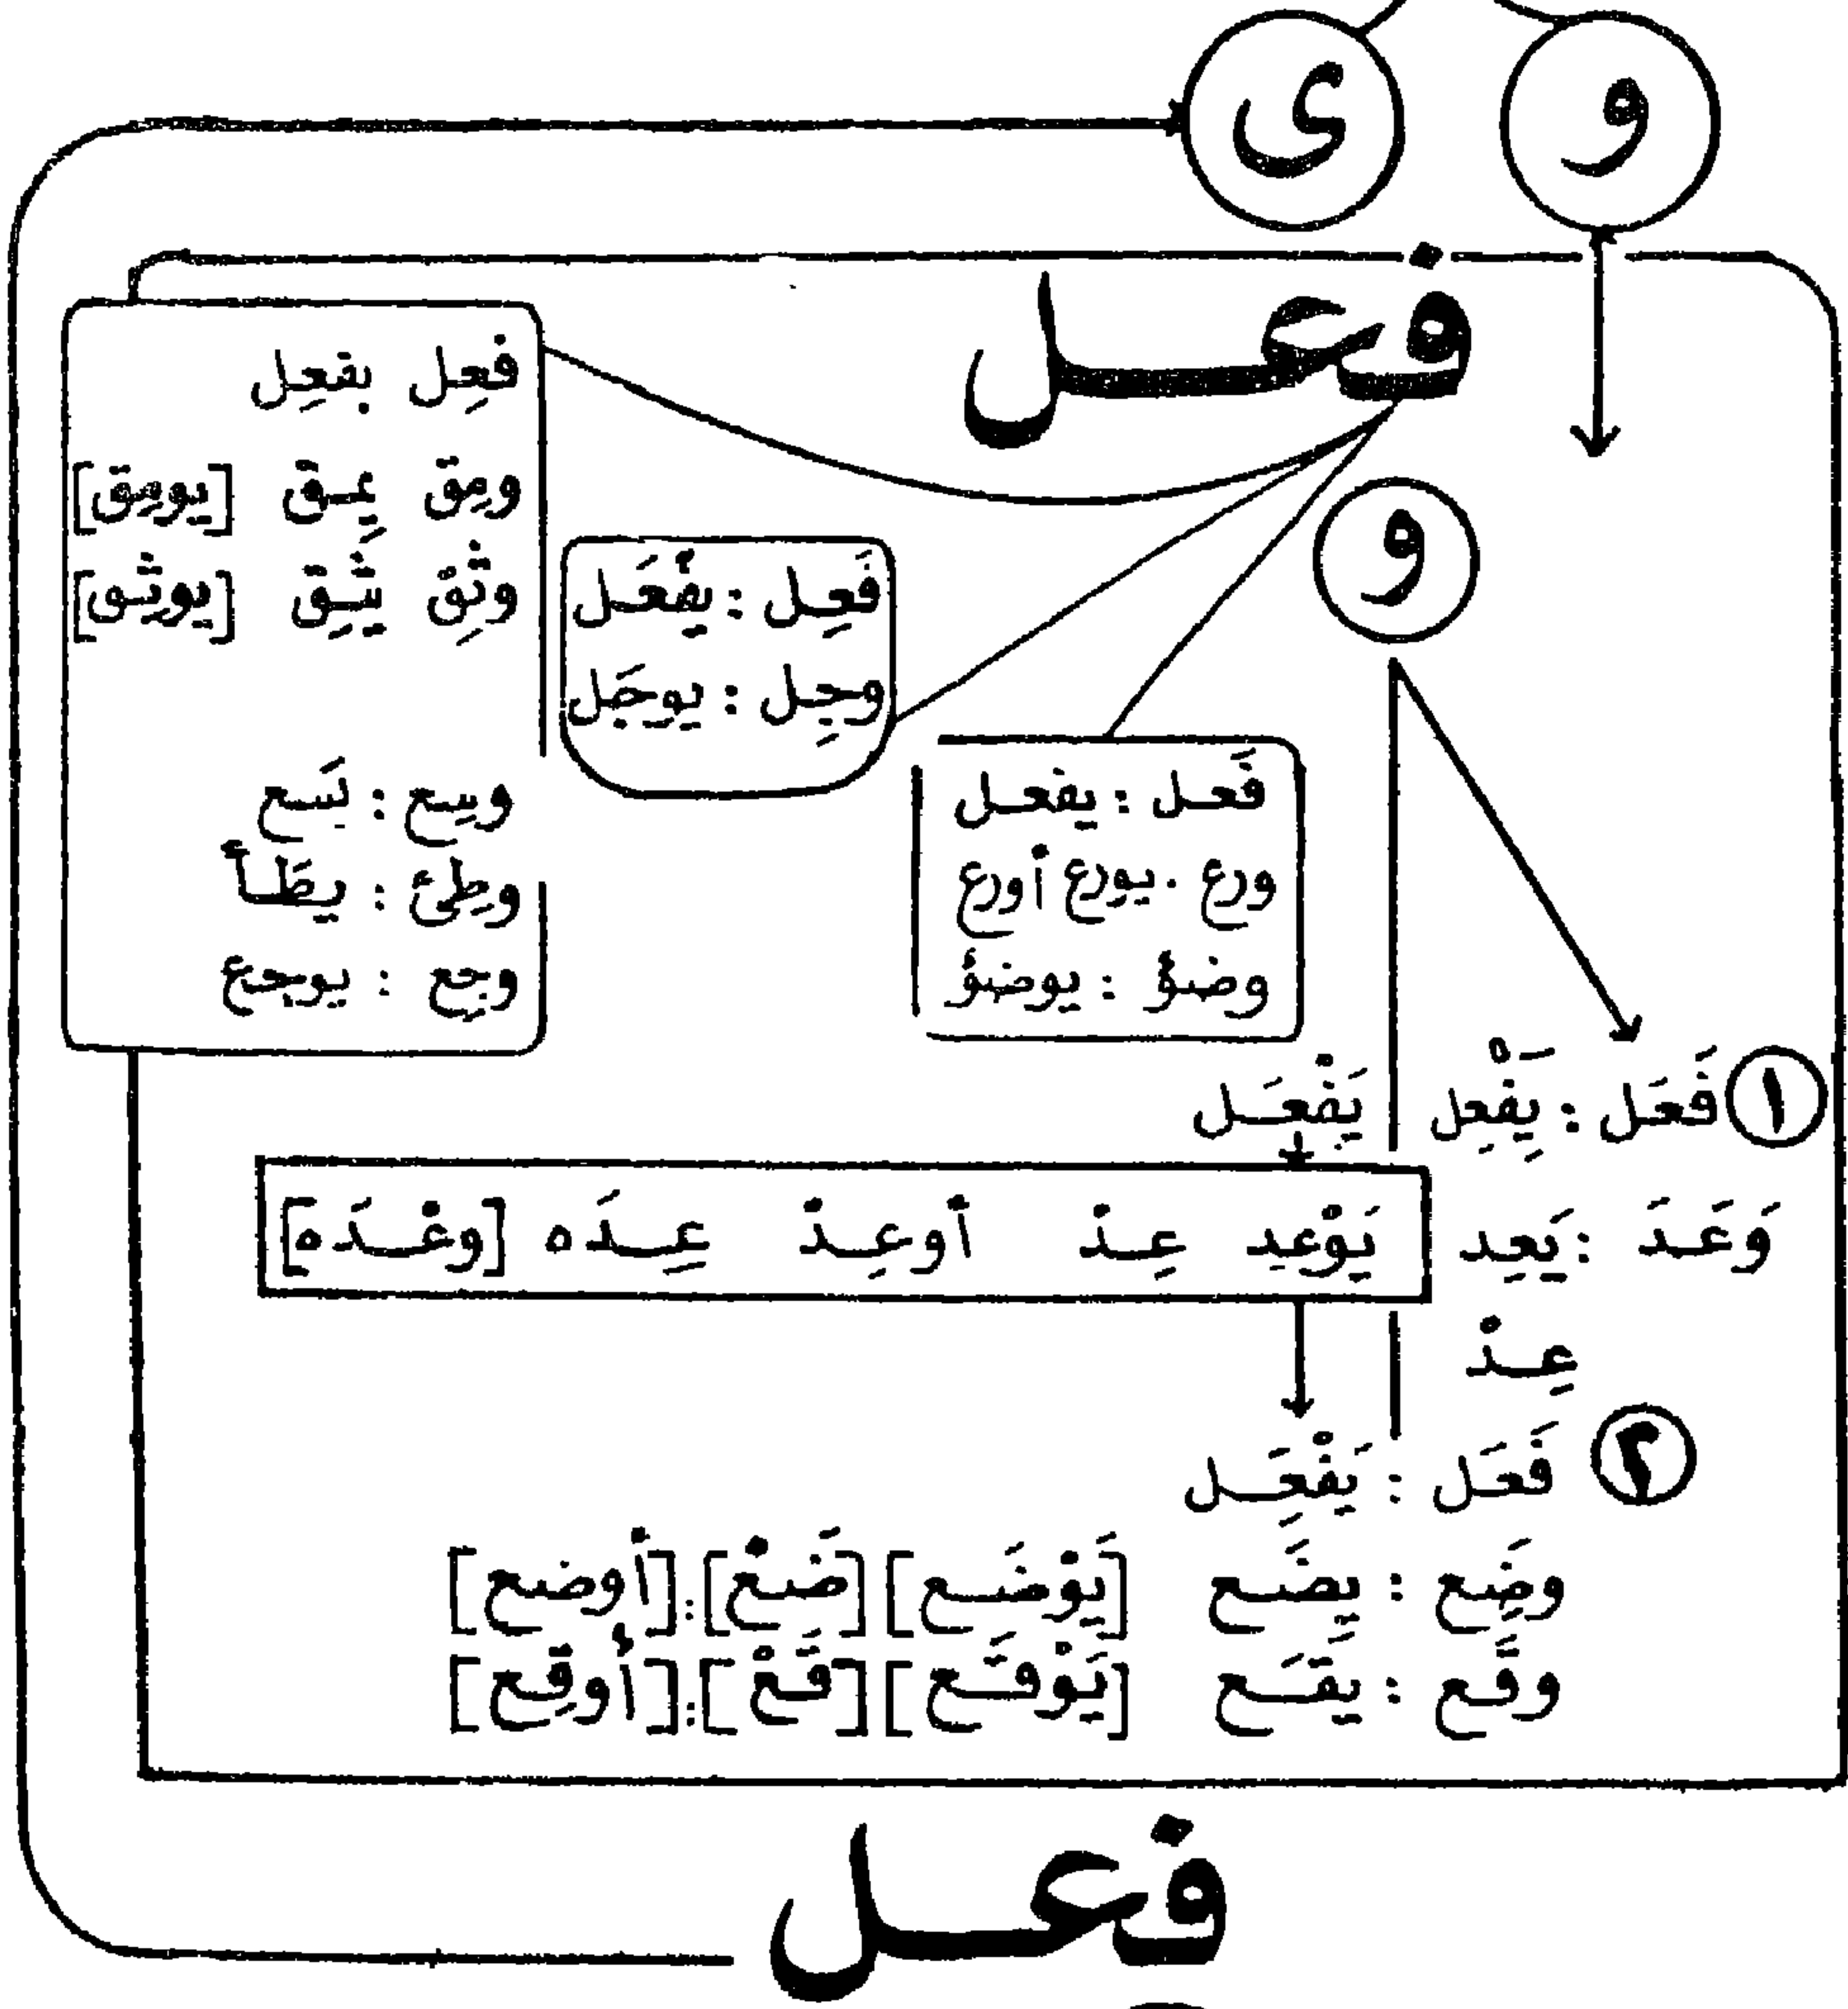 و ى
فعل
و
فعِل يفعِل
ومِق يمِق [يومِق]
وثِق يثِق [يوثق]
وسِع : يَسَع
وطِئ : يطَأ
وجِع : يوجع
فَعِل : يفْعَل
وجِل : يوجَل
فَعل : يفعل
ورع . يورع أورع
وضؤ : يوضؤ
١ فَعَل : يَفْعِل يَفْعَل
وَعَدَ : يَعِد يَوْعِد عِدْ أوعِدْ عِدَه [وعْدَه]
عِدْ
٢ فَعَل : يَفْعَل
وضَع : يضَع [يَوْضَع] [ضَعْ]:[أوضع]
وقَع : يقَع [يَوْقَع] [قَعْ]:[أوقِع]
فعل